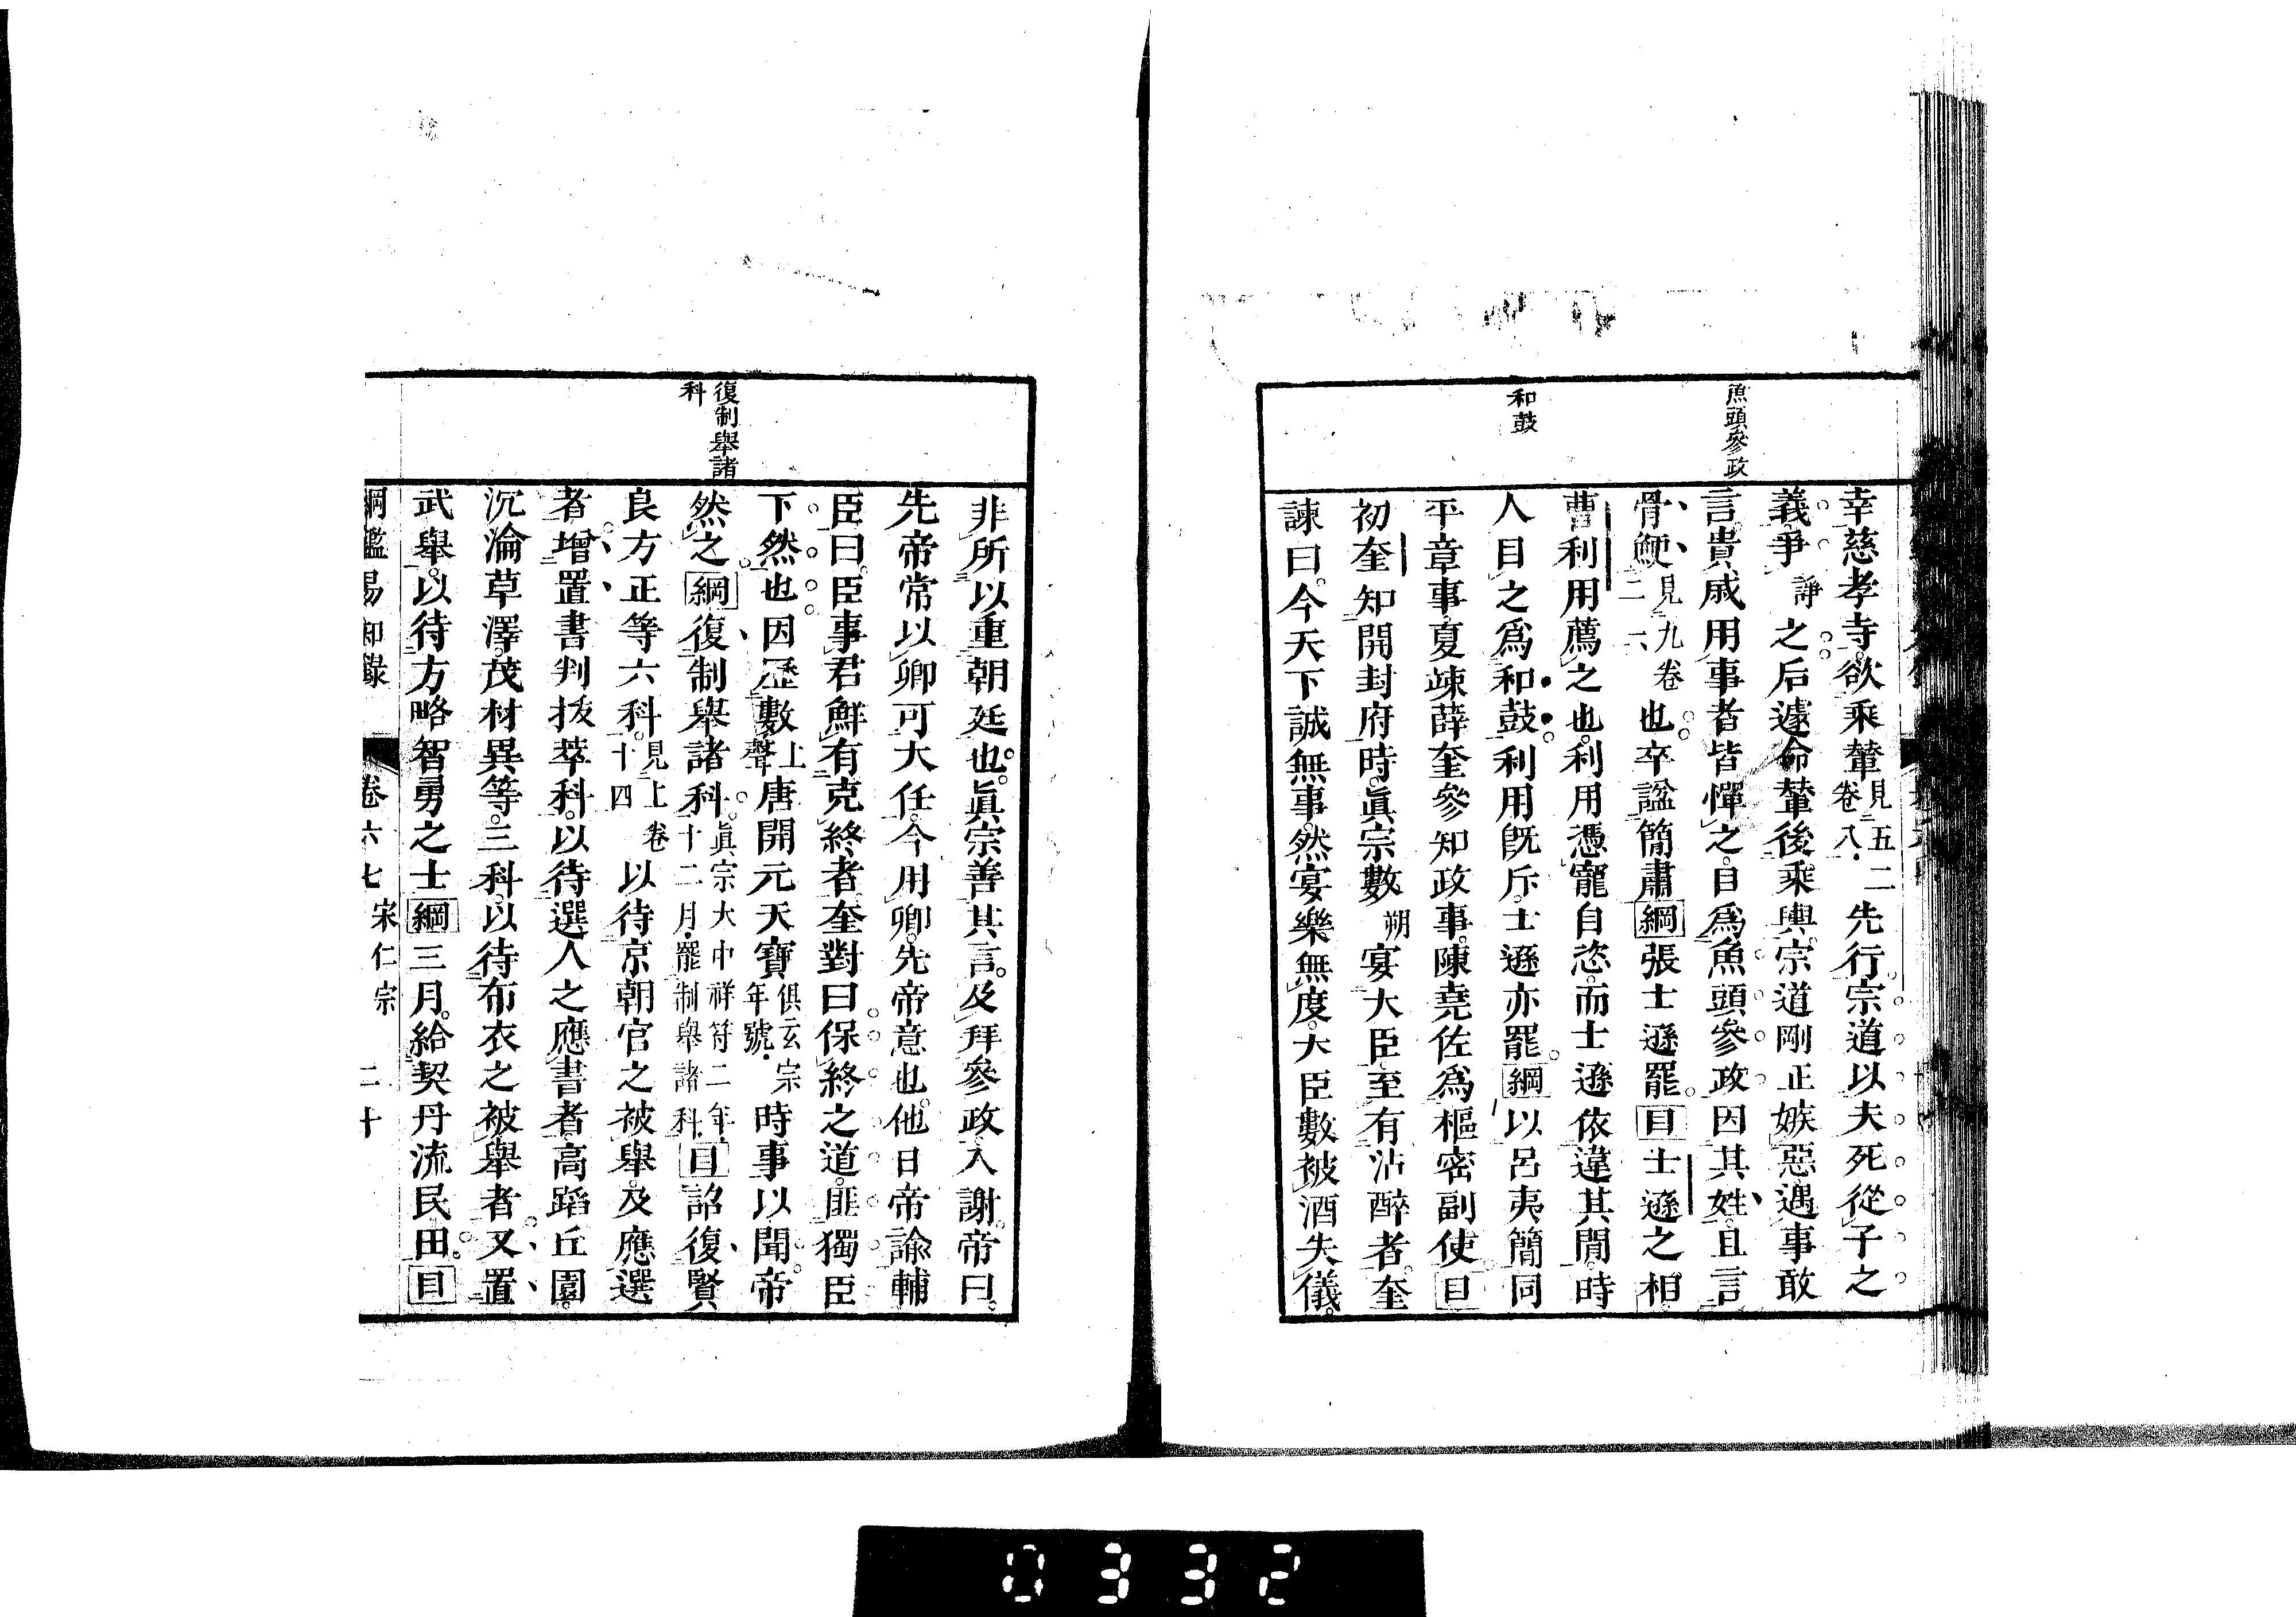 魚頭參政
和鼓
幸慈孝寺。欲乘輦見五二卷八先行。宗道以夫死從子之
義爭諍之。后遽命輦後乘輿。宗道剛正嫉惡。遇事敢
言。貴戚用事者皆憚之。目爲魚頭參政。因其姓。且言
骨鯁見九卷二六也。卒諡簡肅綱張士遜罷。目士遜之相
曹利用薦之也。利用憑寵自恣。而士遜依違其間。時
人目之爲和鼓。利用旣斥。士遜亦罷。綱以呂夷簡同
平章事。夏竦薛奎參知政事。陳堯佐爲樞密副使。目
初奎知開封府時。眞宗數朔宴大臣。至有沾醉者。奎
諫曰。今天下誠無事。然宴樂無度。大臣數被酒失儀。
復制舉諸
科
非所以重朝廷也。眞宗善其言。及拜參政入謝。帝曰。
先帝常以卿可大任。今用卿。先帝意也。他日帝諭輔
臣曰。臣事君鮮有克終者。奎對曰。保終之道。匪獨臣
下然也。因歷數上聲唐開元天寶俱玄宗年號時事以聞。帝
然之。綱復制舉諸科。眞宗大中祥符二年十二月罷制舉諸科目詔復賢
良方正等六科。見上卷十四以待京朝官之被舉。及應選
者。增置書判拔萃科。以待選人之應書者。高蹈丘園。
沉淪草澤。茂材異等。三科。以待布衣之被舉者。又置
武舉。以待方略智勇之士綱三月。給契丹流民田。目
綱鑑易知錄 卷六七 宋仁宗 二十
0332